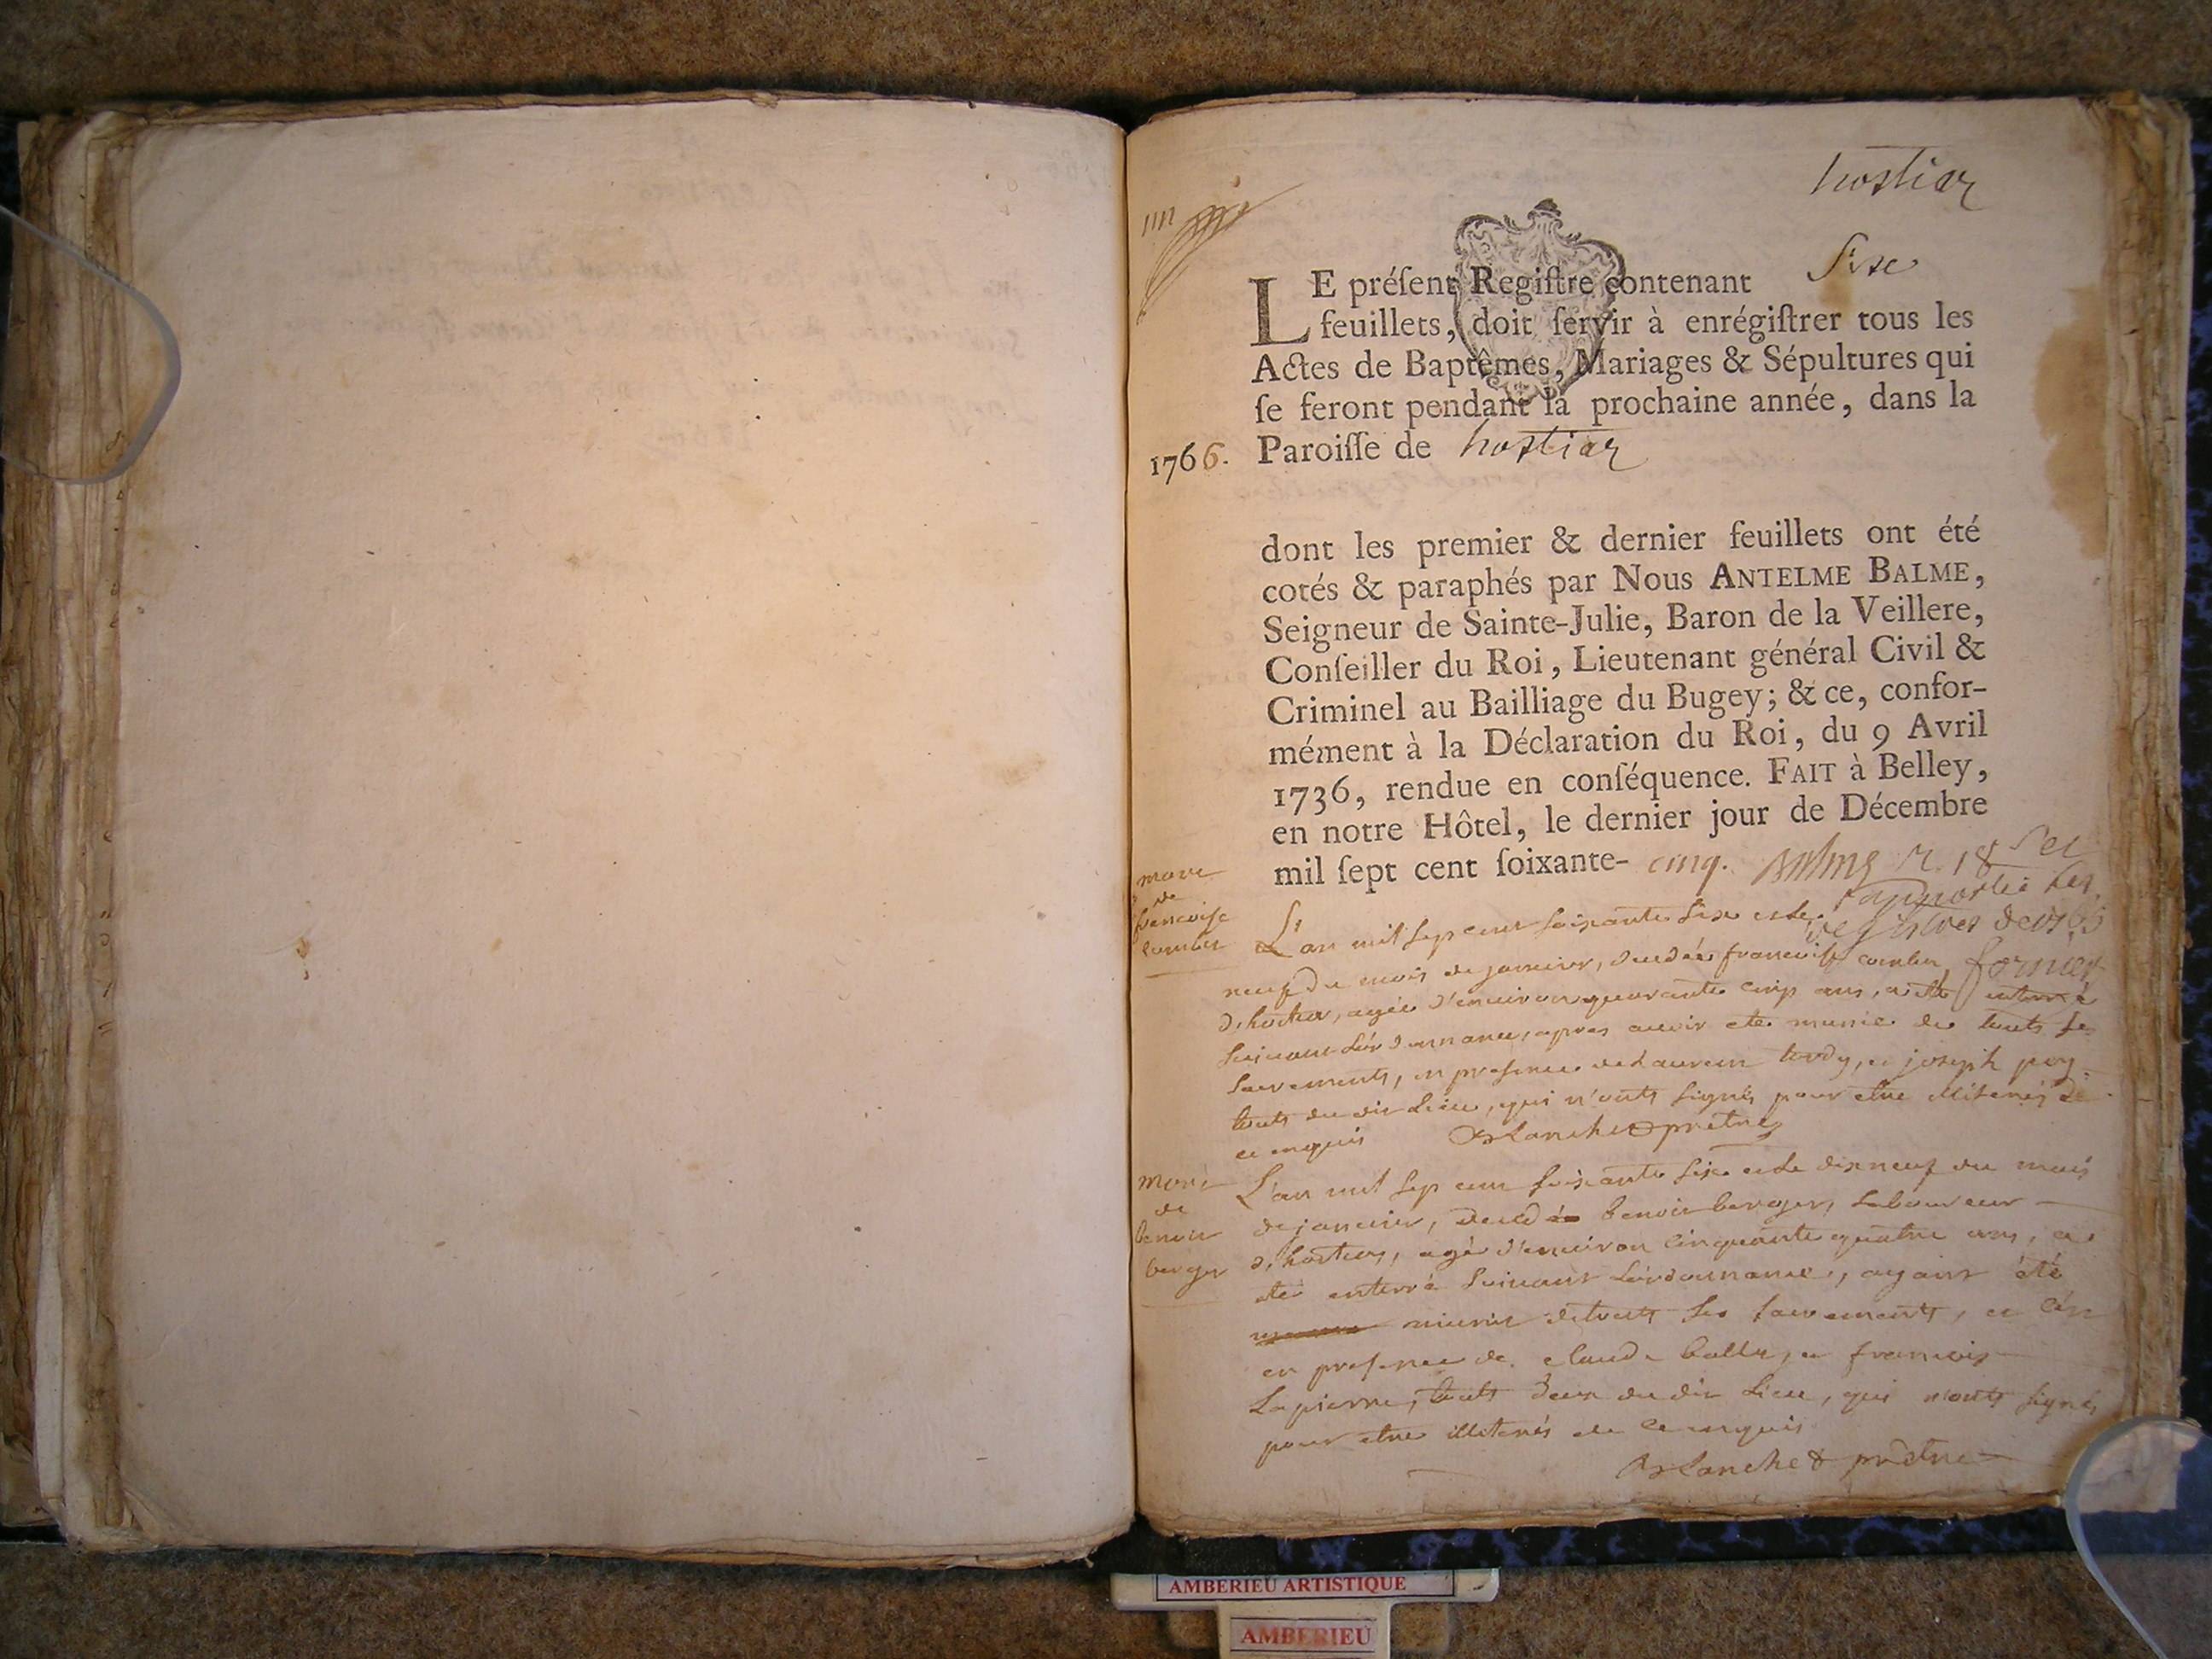 hostiaz
Sixe
LE préſent Regiſtre contenant
feuillets, doit ſervir à enrégiſtrer tous les
Actes de Baptêmes, Mariages & Sépultures qui
ſe feront pendant la prochaine année, dans la
1766. Paroiſſe de hostiaz
dont les premier & dernier feuillets ont été
cotés & paraphés par Nous ANTELME BALME,
Seigneur de Sainte-Julie, Baron de la Veillere,
Conſeiller du Roi, Lieutenant général Civil &
Criminel au Bailliage du Bugey; & ce, confor-
mément à la Déclaration du Roi, du 9 Avril
1736, rendue en conſéquence. FAIT à Belley,
en notre Hôtel, le dernier jour de Décembre
mil ſept cent ſoixante- cinq.
mort
de
francoise
L'an mil sept cent soixante sixe et le
neuf du mois de janvier, francoise
d'hostiaz, agée d'environ quarante cinq ans, a été enterré
suivant l'ordonnance, apres avoir eté munie de touts ses
sacrements, en presence de Laurent tardy, et joseph
touts du dit Lieu, qui n'onts signés pour etre illiterés de
ce enquis Blanchet prêtre
mort
de
benoit
berger
L'an mil sept cent soixante sixe et le dixneuf du mois
de janvier, benoit berger, laboureur
d'hostiaz, agé d'environ cinquante quatre ans, a
eté enterré suivant l'ordonnance, ayant été
munit de touts ses sacrements, et
en presence de claude et francois
Lapierre, touts deux du dit Lieu, qui n'onts signés
pour etre illiterés de ce enquis
Blanchet prêtre
AMBERIEU ARTISTIQUE
AMBERIEU